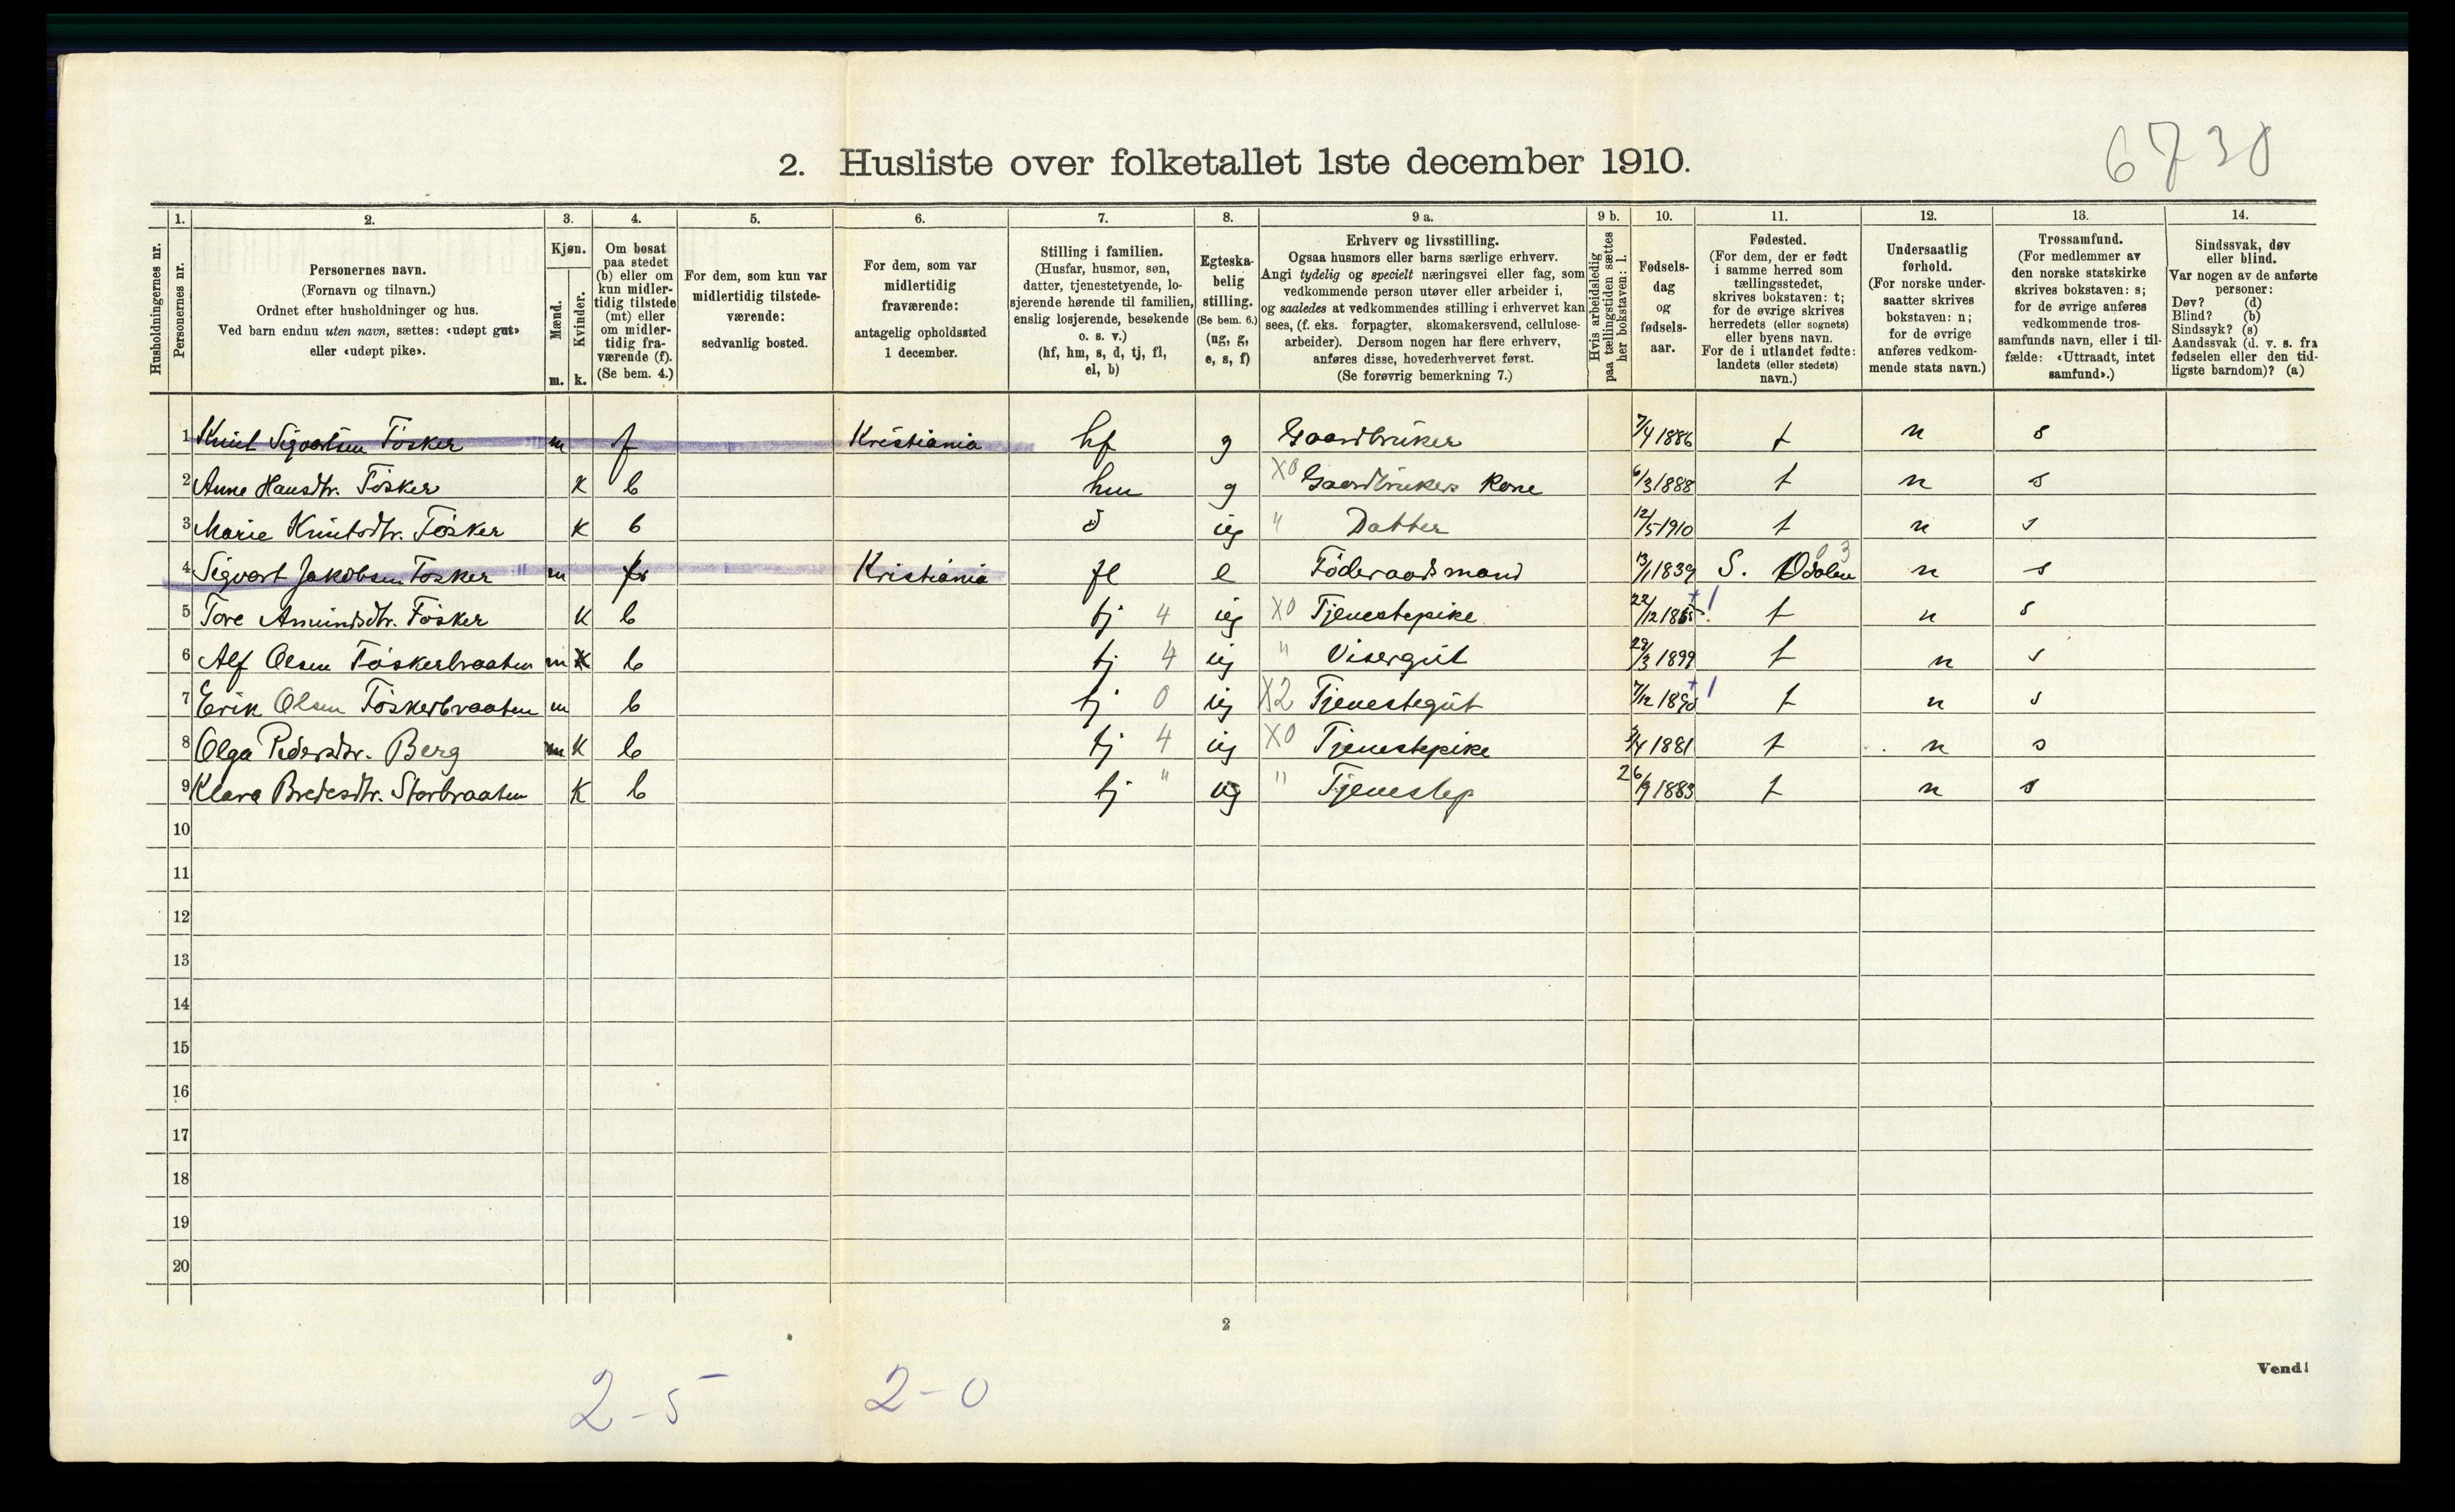 6730
2. Husliste over folketallet 1ste december 1910.
Husholdningernes nr.
1. Personernes nr.
2. Personernes navn.
(Fornavn og tilnavn.)
Ordnet efter husholdninger og hus.
Ved barn endnu uten navn, sættes: «udøpt gut»
eller «udøpt pike».
3. Kjøn.
Mænd. m.
Kvinder. k.
4. Om bosat
paa stedet
(b) eller om
kun midler-
tidig tilstede
(mt) eller
om midler-
tidig fra-
værende (f).
(Se bem. 4.)
5. For dem, som kun var
midlertidig tilstede-
værende:
sedvanlig bosted.
6. For dem, som var
midlertidig
fraværende:
antagelig opholdssted
1 december.
7. Stilling i familien.
(Husfar, husmor, søn,
datter, tjenestetyende, lo-
sjerende hørende til familien,
enslig losjerende, besøkende
o. s. v.)
(hf, hm, s, d, tj, fl,
el, b)
8. Egteska-
belig
stilling.
(Se bem. 6.)
(ug, g,
e, s, f)
9 a. Erhverv og livsstilling.
Ogsaa husmors eller barns særlige erhverv.
Angi tydelig og specielt næringsvei eller fag, som
vedkommende person utøver eller arbeider i,
og saaledes at vedkommendes stilling i erhvervet kan
sees, (f. eks. forpagter, skomakersvend, cellulose-
arbeider). Dersom nogen har flere erhverv,
anføres disse, hovederhvervet først.
(Se forøvrig bemerkning 7.)
9 b. Hvis arbeidsledig
paa tællingstiden sættes
her bokstaven: l.
10. Fødsels-
dag
og
fødsels-
aar.
11. Fødested.
(For dem, der er født
i samme herred som
tællingsstedet,
skrives bokstaven: t;
for de øvrige skrives
herredets (eller sognets)
eller byens navn.
For de i utlandet fødte:
landets (eller stedets)
navn.)
12. Undersaatlig
forhold.
(For norske under-
saatter skrives
bokstaven: n;
for de øvrige
anføres vedkom-
mende stats navn.)
13. Trossamfund.
(For medlemmer av
den norske statskirke
skrives bokstaven: s;
for de øvrige anføres
vedkommende tros-
samfunds navn, eller i til-
fælde: «Uttraadt, intet
samfund».)
14. Sindssvak, døv
eller blind.
Var nogen av de anførte
personer:
Døv? (d)
Blind? (b)
Sindssyk? (s)
Aandssvak (d. v. s. fra
fødselen eller den tid-
ligste barndom)? (a)
1 Knut Sigvartsen Tösker m f Kristiania hf g Gaardbruker 7/4 1886 t n s
2 Anne Hansdtr. Tösker K b hm g X0 Gaardbrukers Kone 6/3 1888 t n s
3 Marie Knutsdtr. Tösker K b d ug " Datter 12/5 1910 t n s
4 Sigvart Jakobsen Tosker m f Kristiania fl e Föderaadsmand 13/1 1839 S. Odalen n s
5 Tore Amundsdtr. Tösker K b tj 4 ug X0 Tjenestepike t n s
6 Alf Olsen Töskerbraaten m b tj 4 ug " Visergut 29/3 1899 t n s
7 Erik Olsen Töskerbraaten m b tj 0 ug X2 Tjenestegut t n s
8 Olga Pedersdtr. Berg K b tj 4 ug X0 Tjenestepike 3/4 1881 t n s
9 Klara Bredesdtr. Storbraaten K b tj " ug " Tjenestep 26/9 1883 t n s
10
11
12
13
14
15
16
17
18
19
20
2
Vend!
2-5 2-0